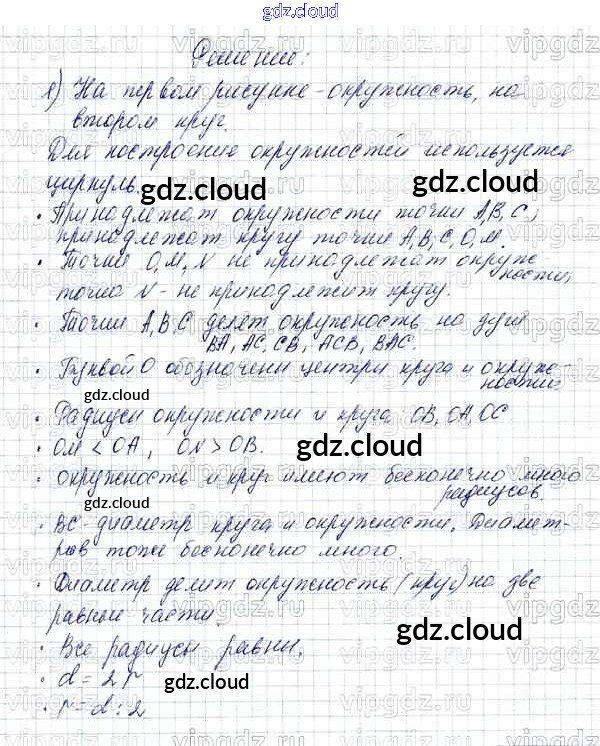 gdz.cloud
Решение:
1) На первом рисунке - окружность, на
втором круг.
Для построение окружностей используется
циркуль.
gdz.cloud
• Принадлежат окружности точки А, В, С;
принадлежат кругу точки А, В, С, О, М.
• Точки О, М, N не принадлежат окруж-
ности,
точка N - не принадлежит кругу.
gdz.cloud
• Точки А, В, С делят окружность на дуги
ВА, АС, СВ, АСВ, ВАС.
• Буквой О обозначены центры круга и окруж-
ностии
gdz.cloud
• Радиусы окружности и круга: ОВ, ОА, ОС
• ОМ < ОА, ОN > ОВ.
gdz.cloud
• окружность и круг имеют бесконечно много
радиусов.
gdz.cloud
• ВС - диаметр круга и окружности. Диамет-
ров тоже бесконечно много.
gdz.cloud
• Диаметр делит окружность (круг) на две
равные части.
gdz.cloud
• Все радиусы равны.
• d = 2r
gdz.cloud
• r = d : 2
vipgdz.ru